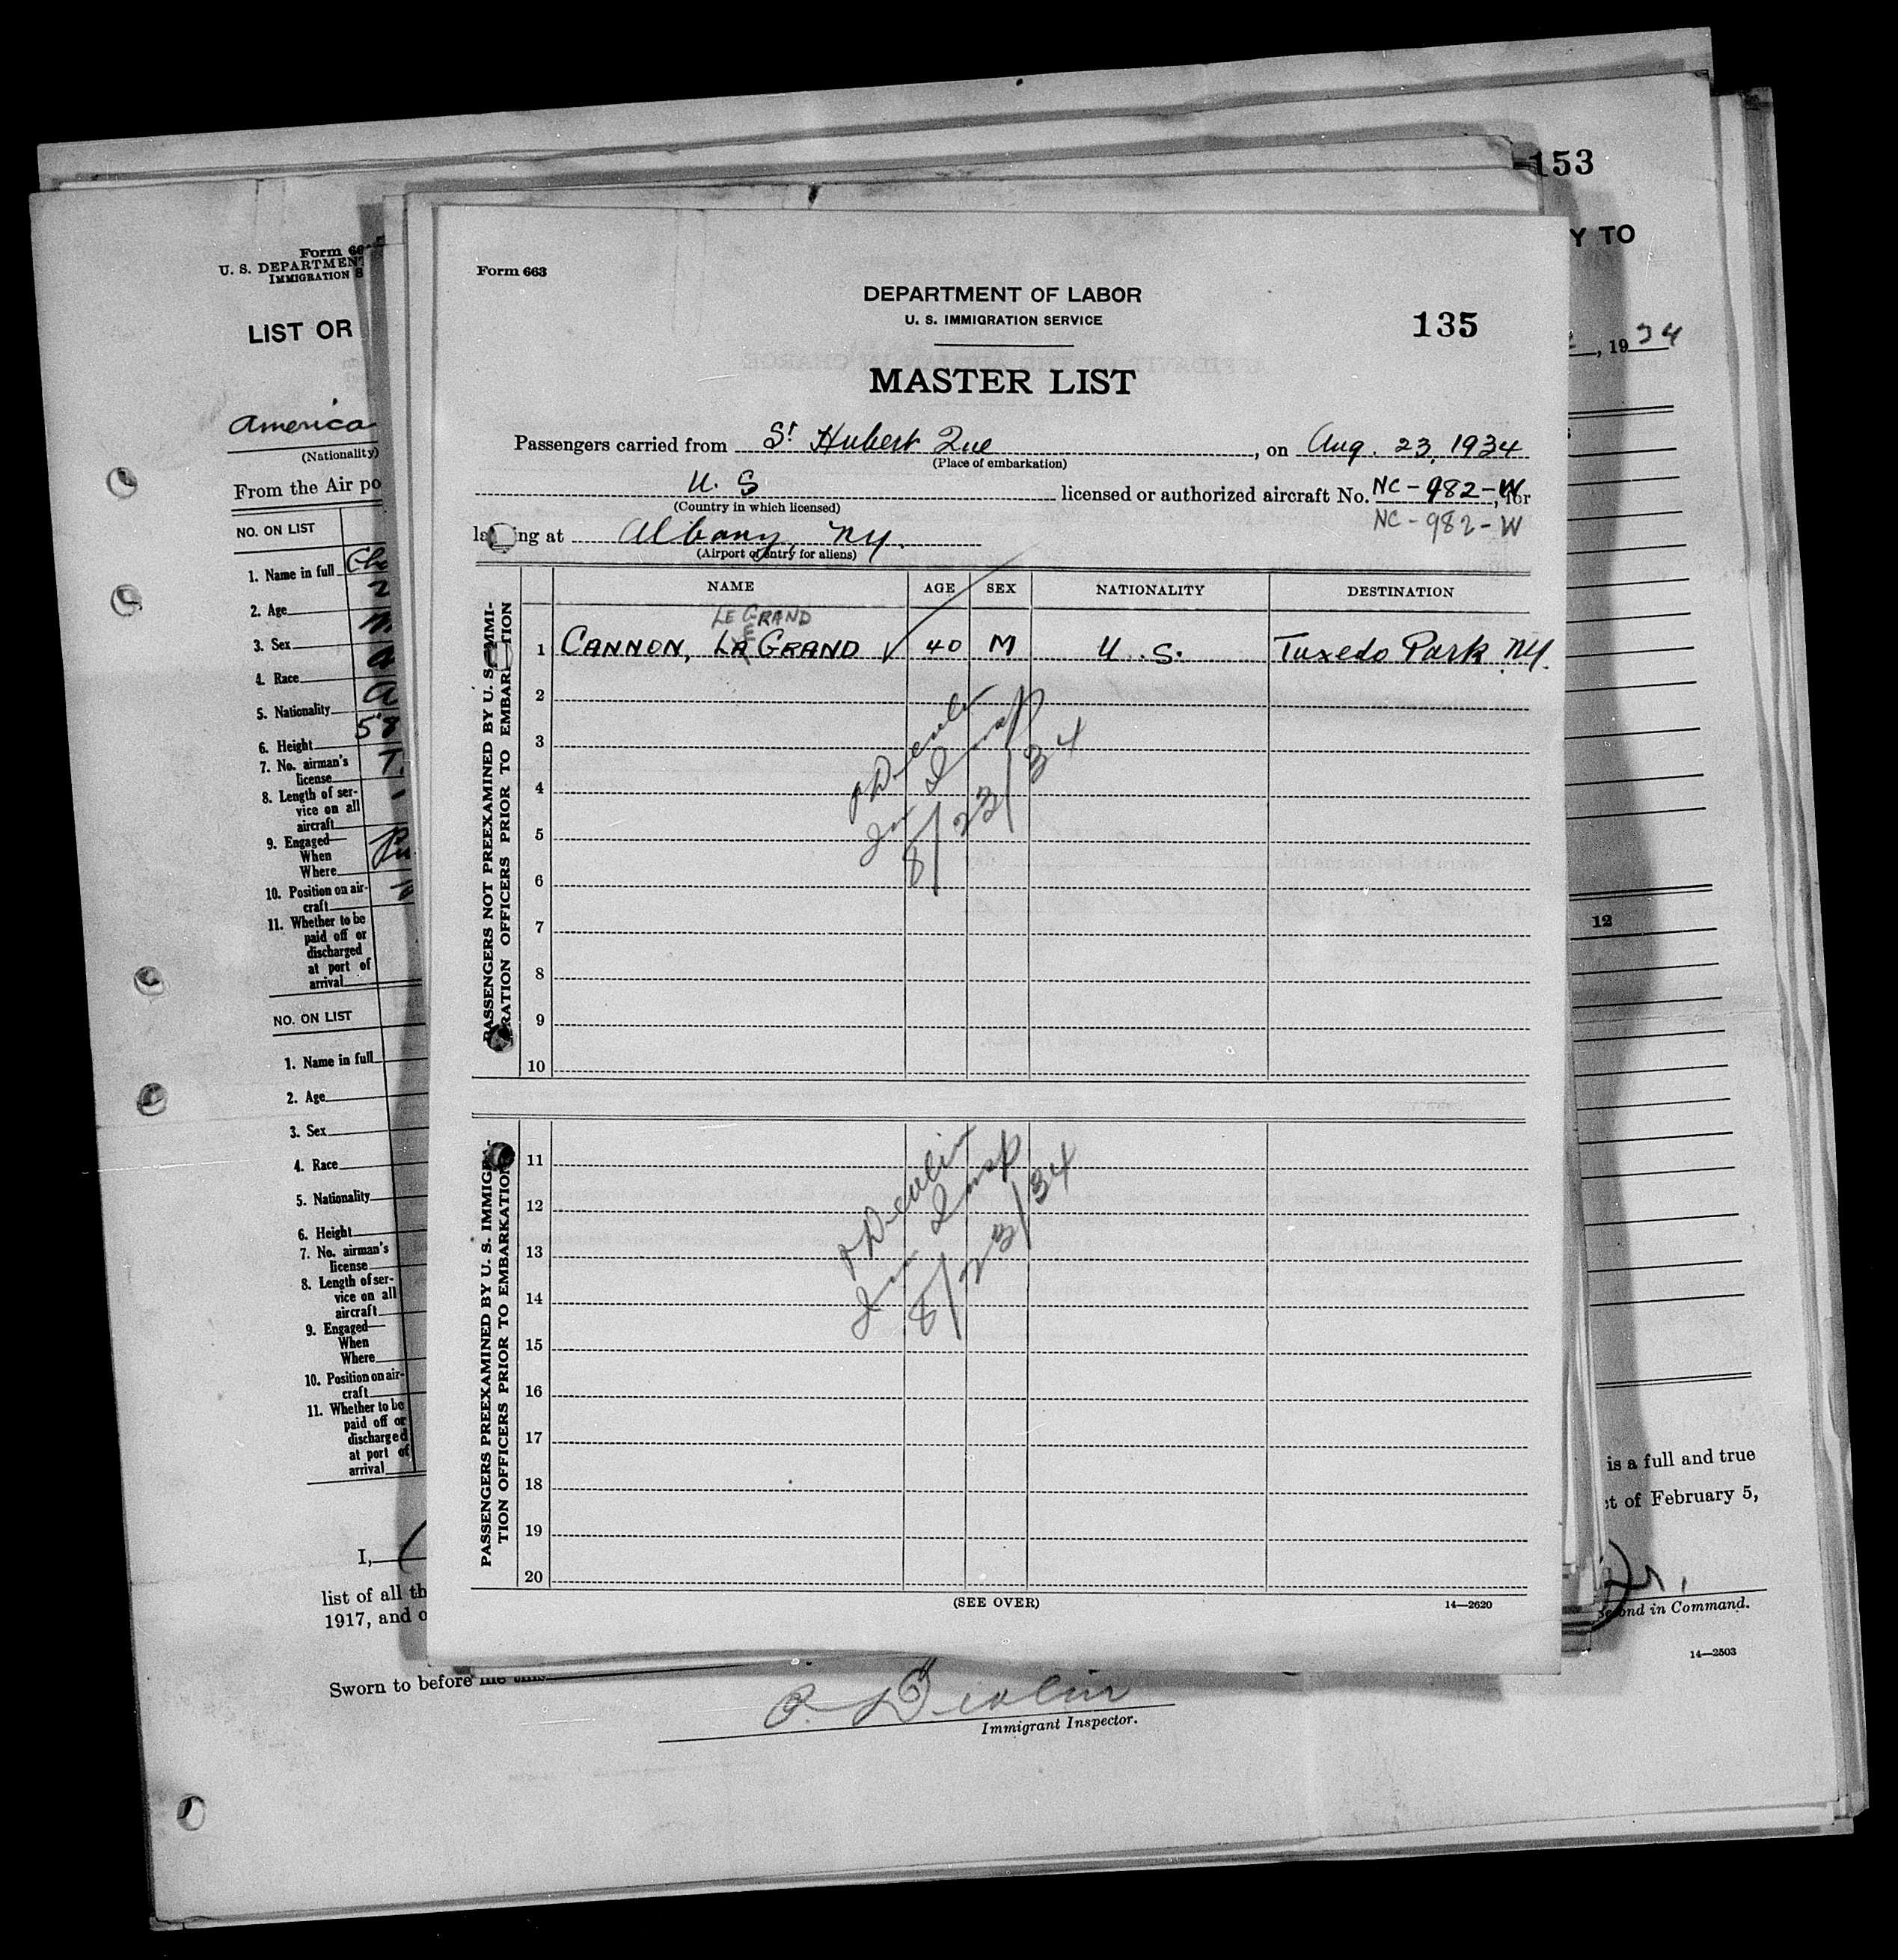 153
Y TO
, 1934
Form 66
U. S. DEPARTMENT
IMMIGRATION S
LIST OR
America
(Nationality)
From the Air po
NO. ON LIST
1. Name in full
2. Age
3. Sex
4. Race
5. Nationality
6. Height
7. No. airman's
license
8. Length of ser-
vice on all
aircraft
9. Engaged—
When
Where
10. Position on air-
craft
11. Whether to be
paid off or
discharged
at port of
arrival
NO. ON LIST
1. Name in full
2. Age
3. Sex
4. Race
5. Nationality
6. Height
7. No. airman's
license
8. Length of ser-
vice on all
aircraft
9. Engaged—
When
Where
10. Position on air-
craft
11. Whether to be
paid off or
discharged
at port of
arrival
I,
list of all th
1917, and o
Form 663
DEPARTMENT OF LABOR
U. S. IMMIGRATION SERVICE
135
MASTER LIST
Passengers carried from St Hubert Que, on Aug. 23, 1934
(Place of embarkation)
U. S licensed or authorized aircraft No. NC-982-W, for
(Country in which licensed)
NC-982-W
landing at Albany, NY.
(Airport of entry for aliens)
NAME AGE SEX NATIONALITY DESTINATION
PASSENGERS NOT PREEXAMINED BY U. S. IMMI-
GRATION OFFICERS PRIOR TO EMBARKATION
LE GRAND
1 CANNON, LE GRAND ✓ 40 M U.S. Tuxedo Park NY.
2
3
4
5
6
7
8
9
10
P Devlin
Im Insp
8/23/34
PASSENGERS PREEXAMINED BY U. S. IMMIGRA-
TION OFFICERS PRIOR TO EMBARKATION
11
12
13
14
15
16
17
18
19
20
P Devlin
Im Insp
8/23/34
(SEE OVER)
14—2620
12
is a full and true
ct of February 5,
Jr.
Second in Command.
14—2503
Sworn to before me this
P. Devlin
Immigrant Inspector.